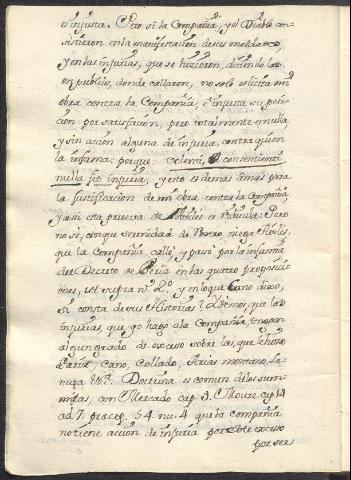 es injusta. Pero si la Compañia, y el Diablo con-
sistieron en la manifestacion de sus maldades,
y en las injurias, que se hizieron, diziendolas
en publico, donde callaron, no solo es licita mi
obra contra la Compañia, è injusta su peti-
cion por satisfacion, pero totalmente es nulla,
y sin accion alguna de injuria, contra quien
la infama: porque: volenti, & consentienti
nulla fit injuria, y esto es demas á mas para
la justificacion de mi obra contra la Compañia,
y assi esta prueva de es ridicula. Pero
no sè, con que serenidad de niega
que la Compañia callò, y passò por la infamia
del Decreto de en las quatro proposici-
ones, ut supra nº. 2º. y en lo que Cano dixo,
si consta de sus Historias? Demos, que las
injurias, que yo hago à la Compañia, tengan
algun grado de excesso sobre las, que le hizo
Paris, Cano, Collado, Arias montano, La-
nuza &c. Doctrina es comun de los sum-
mistas, con Mercado cap. 3. Moure cap. 14
ad 7. precep. § 4. nu. 4 que la compañia
no tiene accion de injuria por este excesso
por ser